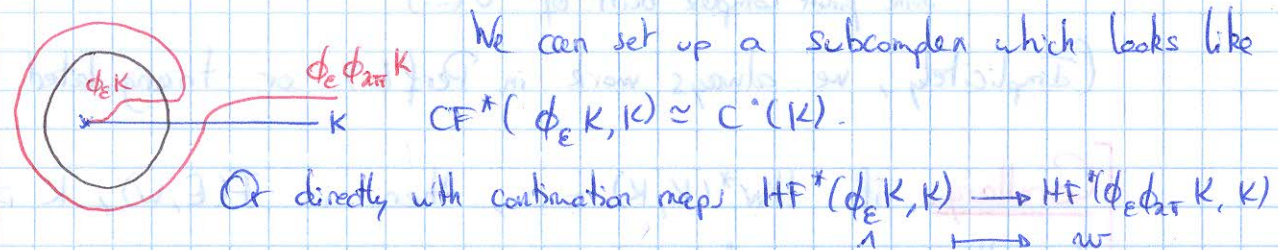 We can set up a subcomplex which looks like
ϕ_ε K
ϕ_ε ϕ_{2π} K
K
CF*(ϕ_ε K, K) ≅ C^•(K).
Or directly with continuation maps HF*(ϕ_ε K, K) ⟶ HF*(ϕ_ε ϕ_{2π} K, K)
1 ⟼ w